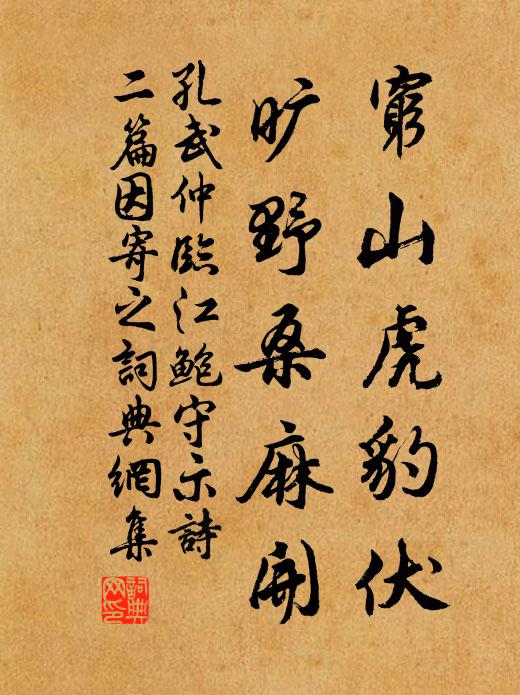 窮山虎豹伏
旷野桑麻開
孔武仲臨江鮑守示詩
二篇因寄之詞典網集
詞典
网印